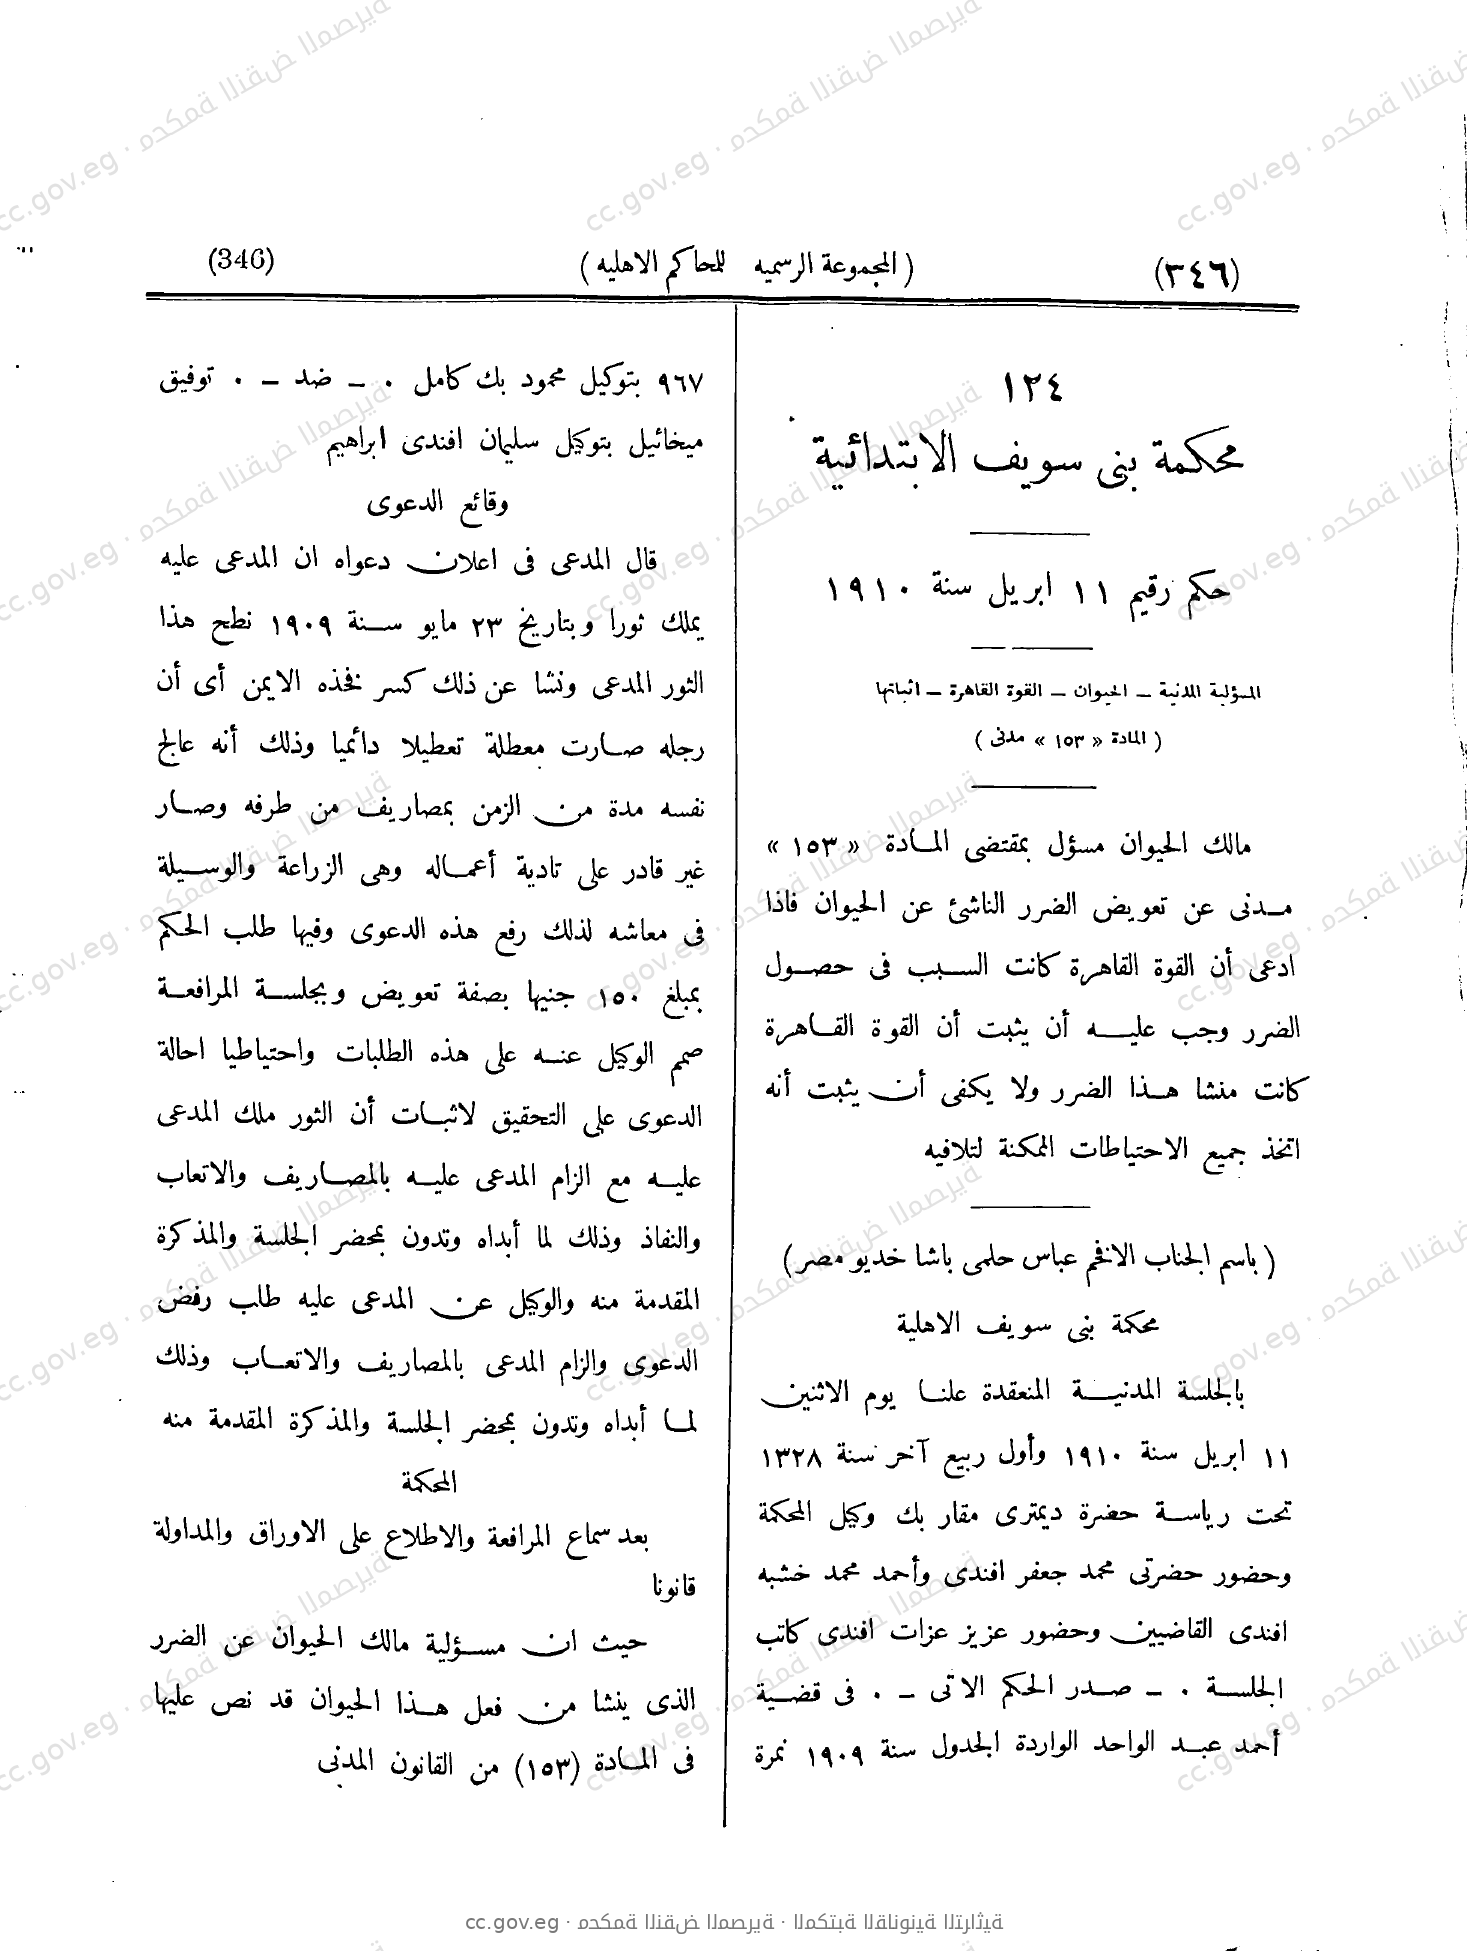 (٣٤٦)
( المجموعة الرسميه للمحاكم الاهليه )
(346)
١٢٤
محكمة بنى سويف الابتدائية
حكم رقيم ١١ ابريل سنة ١٩١٠
المسؤلية المدنية – الحيوان – القوة القاهرة – اثباتها
( المادة « ١٥٣ » مدنى )
مالك الحيوان مسؤل بمقتضى المادة « ١٥٣ »
مدنى عن تعويض الضرر الناشئ عن الحيوان فاذا
ادعى أن القوة القاهرة كانت السبب فى حصول
الضرر وجب عليه أن يثبت أن القوة القاهرة
كانت منشا هذا الضرر ولا يكفى أن يثبت أنه
اتخذ جميع الاحتياطات الممكنة لتلافيه
( باسم الجناب الافخم عباس حلمى باشا خديو مصر )
محكمة بنى سويف الاهلية
بالجلسة المدنية المنعقدة علنا يوم الاثنين
١١ ابريل سنة ١٩١٠ وأول ربيع آخر سنة ١٣٢٨
تحت رياسة حضرة ديمترى مقار بك وكيل المحكمة
وحضور حضرتى محمد جعفر افندى وأحمد محمد خشبه
افندى القاضيين وحضور عزيز عزات افندى كاتب
الجلسة ٠ – صدر الحكم الاتى – ٠ فى قضية
أحمد عبد الواحد الواردة الجدول سنة ١٩٠٩ نمرة
٩٦٧ بتوكيل محمود بك كامل ٠ – ضد – ٠ توفيق
ميخائيل بتوكيل سليمان افندى ابراهيم
وقائع الدعوى
قال المدعى فى اعلان دعواه ان المدعى عليه
يملك ثورا وبتاريخ ٢٣ مايو سنة ١٩٠٩ نطح هذا
الثور المدعى ونشا عن ذلك كسر فخذه الايمن أى أن
رجله صارت معطلة تعطيلا دائميا وذلك أنه عالج
نفسه مدة من الزمن بمصاريف من طرفه وصار
غير قادر على تادية أعماله وهى الزراعة والوسيلة
فى معاشه لذلك رفع هذه الدعوى وفيها طلب الحكم
بمبلغ ١٥٠ جنيها بصفة تعويض وبجلسة المرافعة
صمم الوكيل عنه على هذه الطلبات واحتياطيا احالة
الدعوى على التحقيق لاثبات أن الثور ملك المدعى
عليه مع الزام المدعى عليه بالمصاريف والاتعاب
والنفاذ وذلك لما أبداه وتدون بمحضر الجلسة والمذكرة
المقدمة منه والوكيل عن المدعى عليه طلب رفض
الدعوى والزام المدعى بالمصاريف والاتعاب وذلك
لما أبداه وتدون بمحضر الجلسة والمذكرة المقدمة منه
المحكمة
بعد سماع المرافعة والاطلاع على الاوراق والمداولة
قانونا
حيث ان مسؤلية مالك الحيوان عن الضرر
الذى ينشا من فعل هذا الحيوان قد نص عليها
فى المادة (١٥٣) من القانون المدنى
cc.gov.eg · محكمة النقض المصرية · المكتبة القانونية التراثية